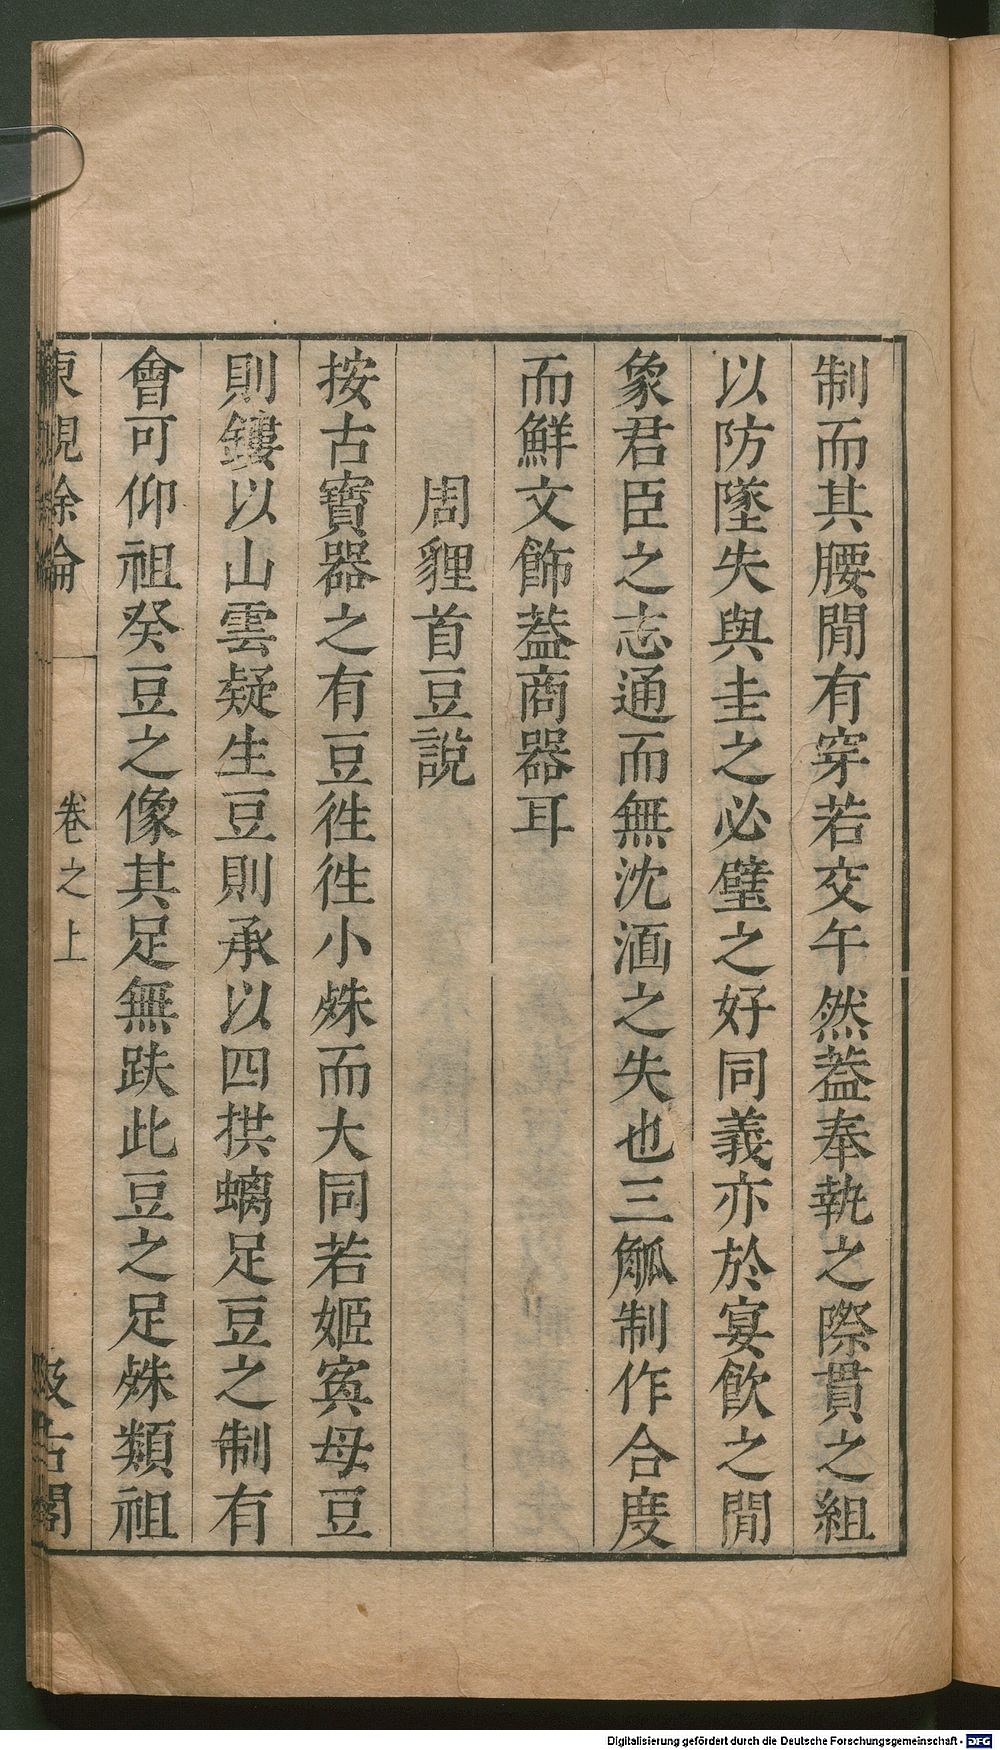 制而其腰閒有穿若交午然葢奉執之際貫之組
以防墜失與圭之必璧之好同義亦於宴飲之閒
象君臣之志通而無沈湎之失也三觚制作合度
而鮮文飾葢商器耳
周貍首豆說
按古寶器之有豆徃徃小殊而大同若姬寏母豆
則鏤以山雲疑生豆則承以四拱螭足豆之制有
會可仰祖癸豆之像其足無趺此豆之足殊類祖
東觀餘論
卷之上
汲古閣
Digitalisierung gefördert durch die Deutsche Forschungsgemeinschaft - DFG